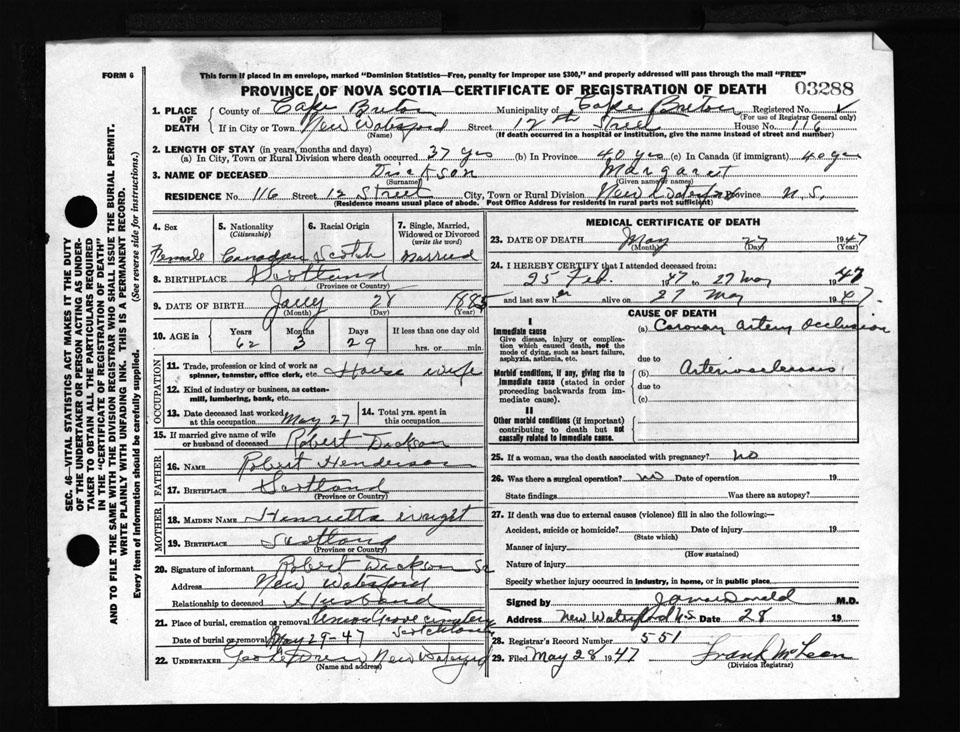 FORM 6
This form if placed in an envelope, marked "Dominion Statistics—Free, penalty for improper use $300," and properly addressed will pass through the mail "FREE"
PROVINCE OF NOVA SCOTIA—CERTIFICATE OF REGISTRATION OF DEATH 03288
SEC. 46—VITAL STATISTICS ACT MAKES IT THE DUTY
OF THE UNDERTAKER OR PERSON ACTING AS UNDER-
TAKER TO OBTAIN ALL THE PARTICULARS REQUIRED
IN THE "CERTIFICATE OF REGISTRATION OF DEATH"
AND TO FILE THE SAME WITH THE DIVISION REGISTRAR WHO SHALL ISSUE THE BURIAL PERMIT.
WRITE PLAINLY WITH UNFADING INK. THIS IS A PERMANENT RECORD.
Every item of Information should be carefully supplied. (See reverse side for instructions.)
1. PLACE OF DEATH
County of Cape Breton Municipality of Cape Breton Registered No.
(For use of Registrar General only)
If in City or Town New Waterford Street 12th Street House No. 116
(Name) (If death occurred in a hospital or institution, give the name instead of street and number)
2. LENGTH OF STAY (in years, months and days)
(a) In City, Town or Rural Division where death occurred 37 yrs (b) In Province 40 yrs (c) In Canada (if immigrant) 40 yrs
3. NAME OF DECEASED Dickson Margaret
(Surname) (Given name or names)
RESIDENCE No. 116 Street 12 Street City, Town or Rural Division New Waterford Province N.S.
(Residence means usual place of abode. Post Office Address for residents in rural parts not sufficient)
4. Sex Female
5. Nationality (Citizenship) Canadian
6. Racial Origin Scotch
7. Single, Married, Widowed or Divorced (write the word) Married
8. BIRTHPLACE Scotland
(Province or Country)
9. DATE OF BIRTH 28 1885
(Month) (Day) (Year)
10. AGE in Years Months Days If less than one day old
62 3 29 hrs. or min.
OCCUPATION
11. Trade, profession or kind of work as spinner, teamster, office clerk, etc. House wife
12. Kind of industry or business, as cotton-mill, lumbering, bank, etc.
13. Date deceased last worked at this occupation May 27
14. Total yrs. spent in this occupation
15. If married give name of wife or husband of deceased Robert Dickson
FATHER
16. NAME Robert Henderson
17. BIRTHPLACE Scotland
(Province or Country)
MOTHER
18. MAIDEN NAME Henrietta Wright
19. BIRTHPLACE Scotland
(Province or Country)
20. Signature of informant Robert Dickson Sr
Address New Waterford
Relationship to deceased Husband
21. Place of burial, cremation or removal Union Grove Cemetery
Scotchtown
Date of burial or removal May 29-47
22. UNDERTAKER New Waterford
(Name and address)
MEDICAL CERTIFICATE OF DEATH
23. DATE OF DEATH May 27 1947
(Month) (Day) (Year)
24. I HEREBY CERTIFY that I attended deceased from:
25 Feb. 1947 27 May 1947
and last saw her alive on 27 May 1947
CAUSE OF DEATH
I
Immediate cause
Give disease, injury or complication which caused death, not the mode of dying, such as heart failure, asphyxia, asthenia, etc.
(a) Coronary artery occlusion
due to
Morbid conditions, if any, giving rise to immediate cause (stated in order proceeding backwards from immediate cause).
(b) Arteriosclerosis
due to
(c)
II
Other morbid conditions (if important) contributing to death but not causally related to immediate cause.
25. If a woman, was the death associated with pregnancy? no
26. Was there a surgical operation? no Date of operation 19
State findings Was there an autopsy?
27. If death was due to external causes (violence) fill in also the following:—
Accident, suicide or homicide? Date of injury 19
(State which)
Manner of injury
(How sustained)
Nature of injury
Specify whether injury occurred in industry, in home, or in public place
Signed by M.D.
Address New Waterford N.S. Date 28 19
28. Registrar's Record Number 551
29. Filed May 28 1947 Frank McLean
(Division Registrar)